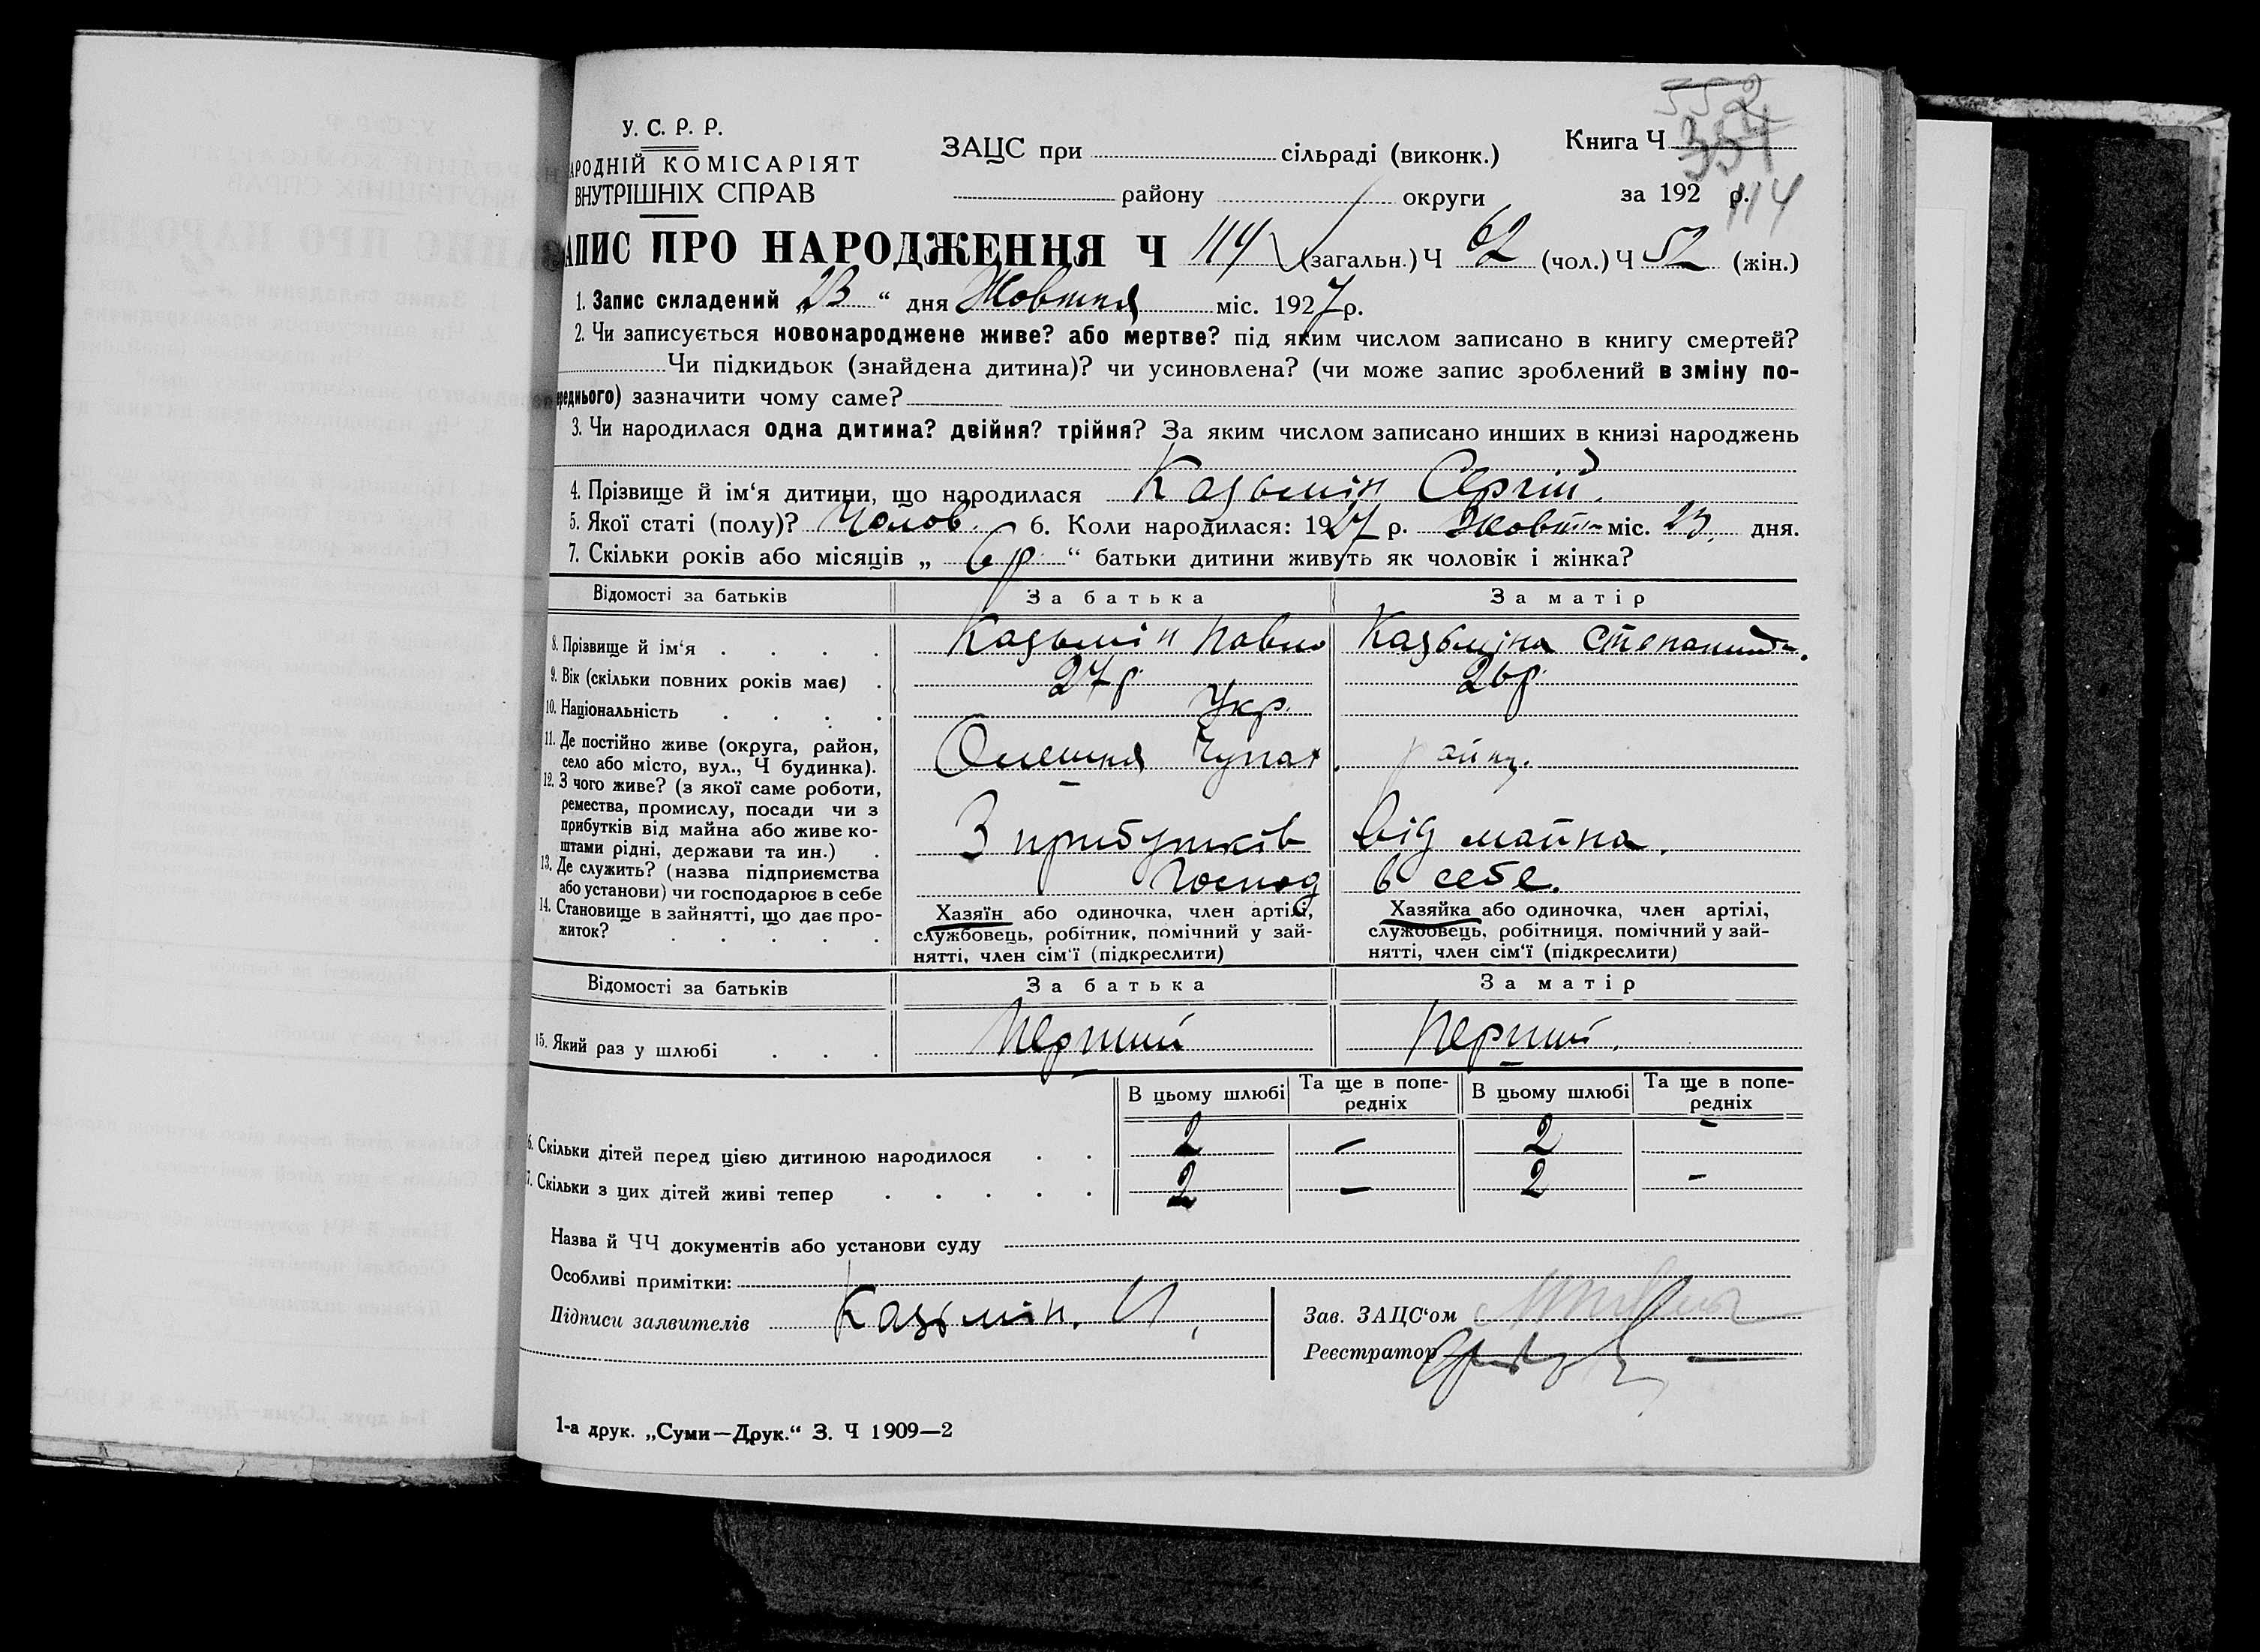 552
354
114
У. С. Р. Р.
АРОДНІЙ КОМІСАРІЯТ
ВНУТРІШНІХ СПРАВ
ЗАЦС при сільраді (виконк.)
району округи
Книга Ч
за 192 р.
АПИС ПРО НАРОДЖЕННЯ Ч 114 (загальн.) Ч 62 (чол.) Ч 52 (жін.)
1. Запис складений „23“ дня Жовтня міс. 1927 р.
2. Чи записується новонароджене живе? або мертве? під яким числом записано в книгу смертей?
Чи підкидьок (знайдена дитина)? чи усиновлена? (чи може запис зроблений в зміну по-
реднього) зазначити чому саме?
3. Чи народилася одна дитина? двійня? трійня? За яким числом записано инших в книзі народжень
4. Прізвище й ім‘я дитини, що народилася Казьмін Сергій.
5. Якої статі (полу)? Чолов. 6. Коли народилася: 1927 р. Жовт міс. 23. дня.
7. Скільки років або місяців „ 6 р “ батьки дитини живуть як чоловік і жінка?
Відомості за батьків За батька За матір
8. Прізвище й ім‘я Казьмін Павло Казьміна Степанида.
9. Вік (скільки повних років має) 27 р. 26 р.
10. Національність Укр.
11. Де постійно живе (округа, район,
село або місто, вул., Ч будинка). Олешня Чупах. району.
12. З чого живе? (з якої саме роботи,
ремества, промислу, посади чи з
прибутків від майна або живе ко-
штами рідні, держави та ин.) З прибутків від майна.
13. Де служить? (назва підприємства
або установи) чи господарює в себе Господ в себе.
14. Становище в зайнятті, що дає про-
житок?
Хазяїн або одиночка, член артілі,
службовець, робітник, помічний у зай-
нятті, член сім‘ї (підкреслити)
Хазяйка або одиночка, член артілі,
службовець, робітниця, помічний у зай-
нятті, член сім‘ї (підкреслити)
Відомості за батьків За батька За матір
15. Який раз у шлюбі Перший Перший.
В цьому шлюбі Та ще в попе-
редніх В цьому шлюбі Та ще в попе-
редніх
6. Скільки дітей перед цією дитиною народилося 2 – 2 –
7. Скільки з цих дітей живі тепер 2 – 2 –
Назва й ЧЧ документів або установи суду
Особливі примітки:
Підписи заявителів Казьмін.
Зав. ЗАЦС‘ом
Реєстратор
1-а друк. „Суми—Друк.“ З. Ч 1909—2